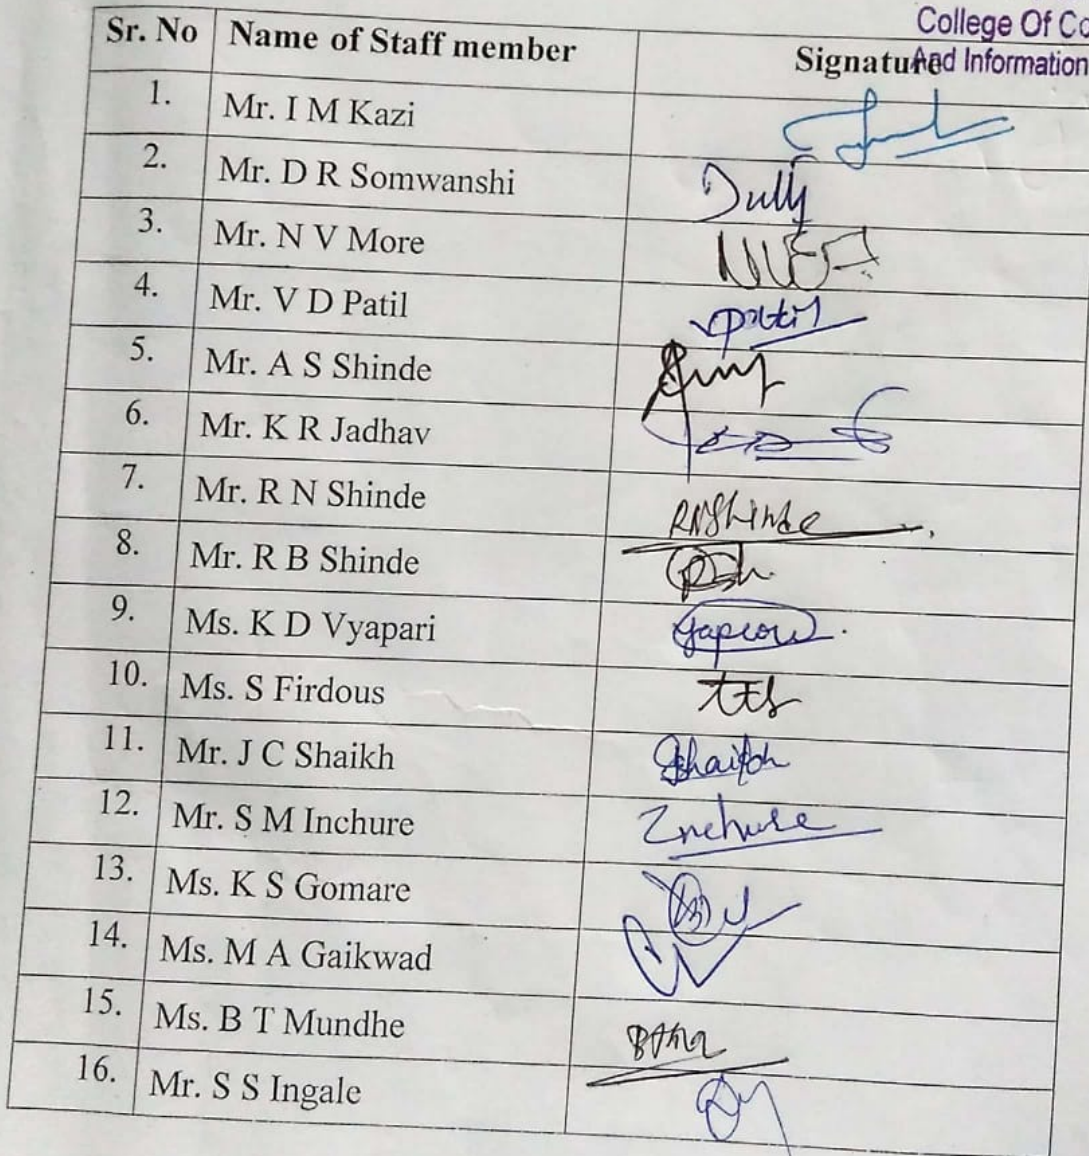 College Of Co
And Information
Sr. No Name of Staff member Signature
1. Mr. I M Kazi
2. Mr. D R Somwanshi
3. Mr. N V More
4. Mr. V D Patil vpatil
5. Mr. A S Shinde
6. Mr. K R Jadhav
7. Mr. R N Shinde RNShinde
8. Mr. R B Shinde
9. Ms. K D Vyapari
10. Ms. S Firdous
11. Mr. J C Shaikh Shaikh
12. Mr. S M Inchure Inchure
13. Ms. K S Gomare
14. Ms. M A Gaikwad
15. Ms. B T Mundhe
16. Mr. S S Ingale